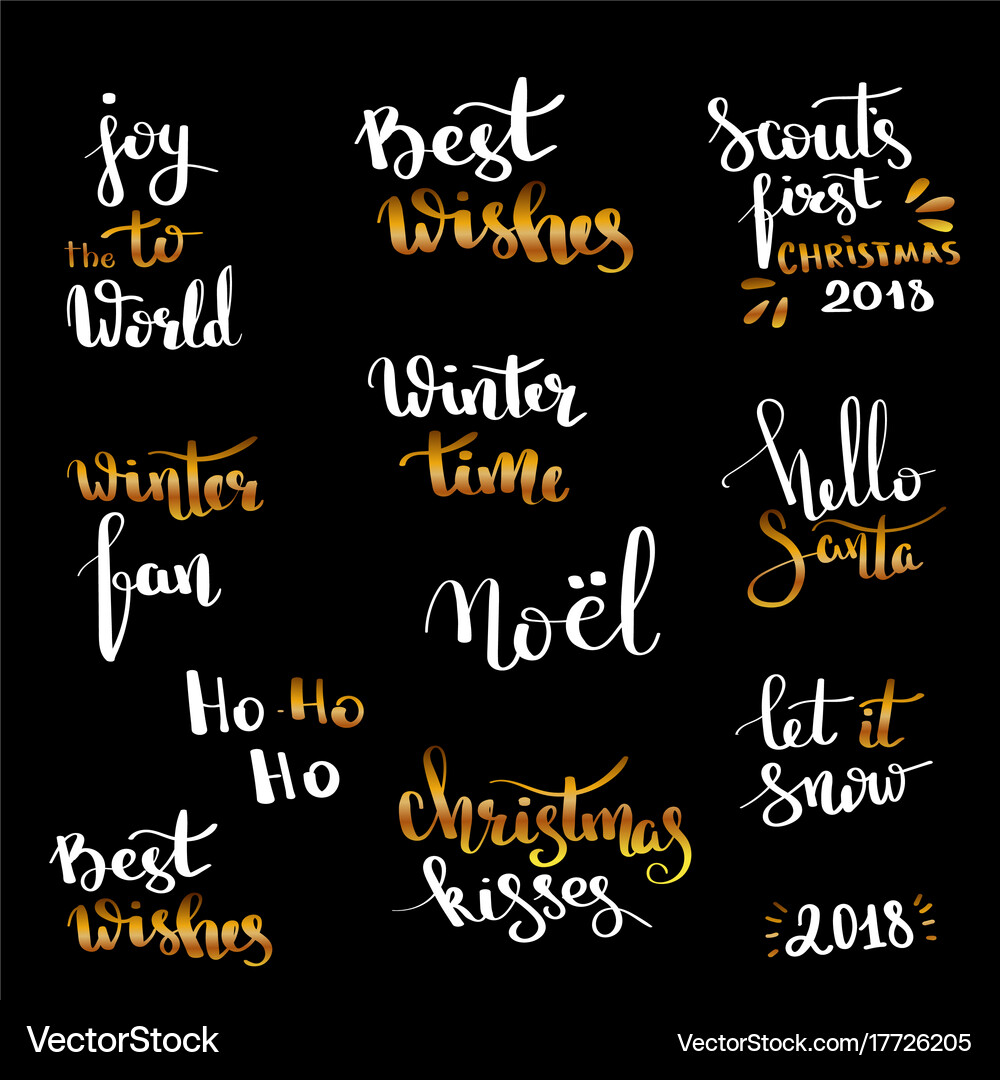 joy
the to
World
Best
Wishes
Scout's
first
CHRISTMAS
2018
Winter
time
winter
fan
hello
Santa
Noël
Ho-Ho
Ho
let it
snow
christmas
kisses
Best
Wishes
2018
VectorStock
VectorStock.com/17726205